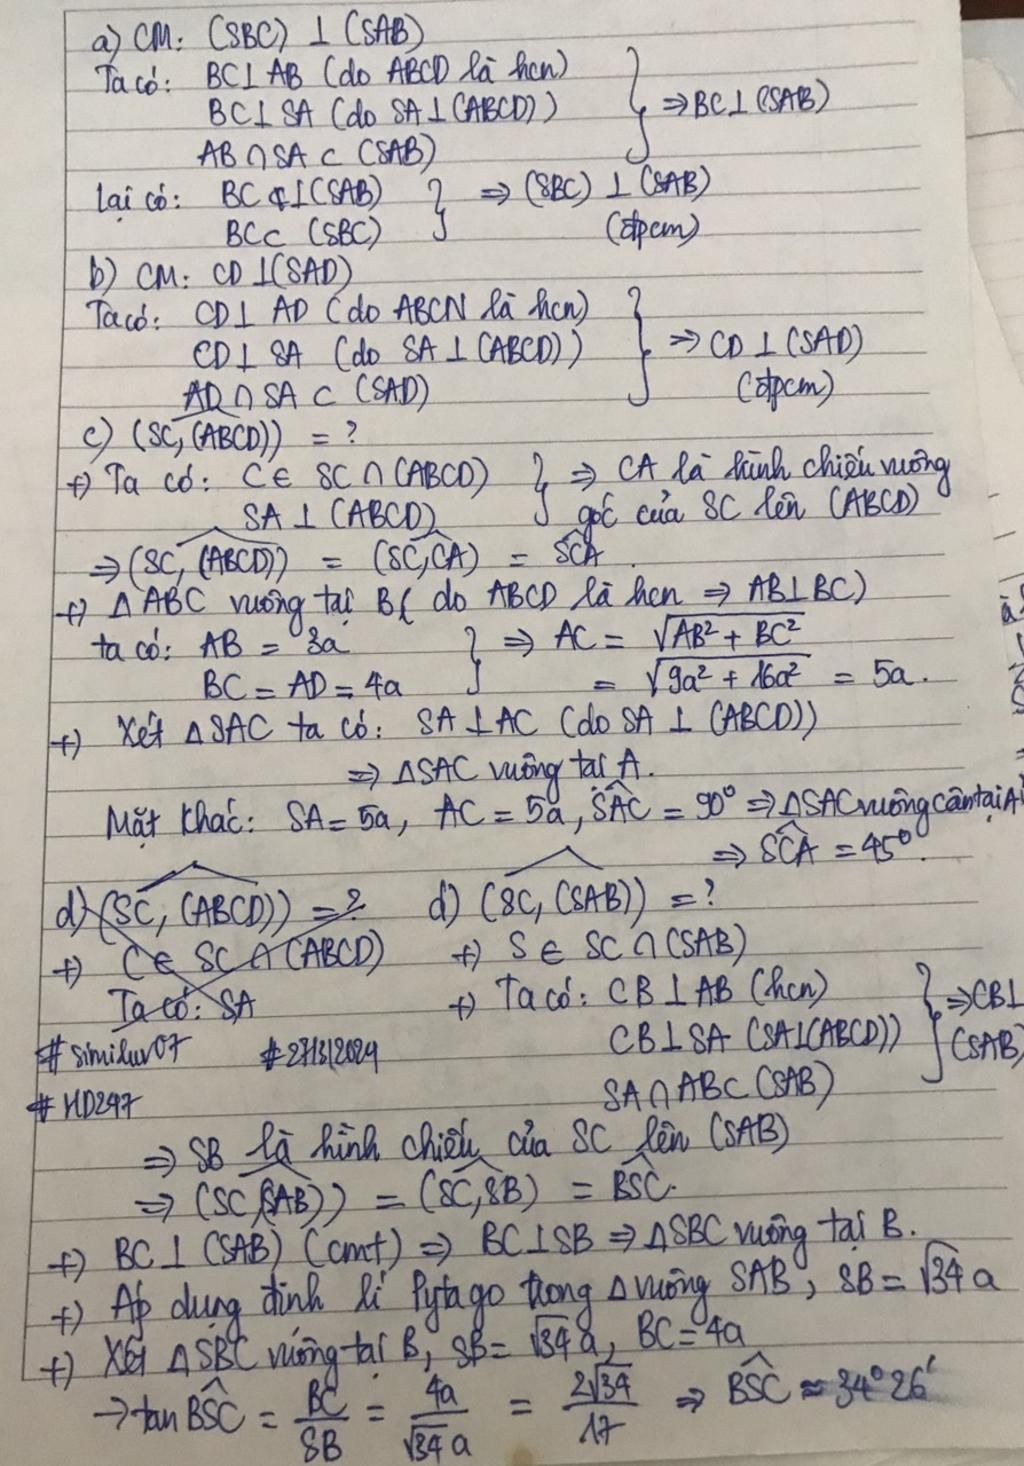 a) CM: (SBC) ⊥ (SAB)
Ta có: BC ⊥ AB (do ABCD là hcn)
BC ⊥ SA (do SA ⊥ (ABCD)) } ⇒ BC ⊥ (SAB)
AB ∩ SA ⊂ (SAB)
Lại có: BC ⊥ (SAB) } ⇒ (SBC) ⊥ (SAB)
BC ⊂ (SBC) (đpcm)
b) CM: CD ⊥ (SAD)
Ta có: CD ⊥ AD (do ABCN là hcn)
CD ⊥ SA (do SA ⊥ (ABCD)) } ⇒ CD ⊥ (SAD)
AD ∩ SA ⊂ (SAD) (đpcm)
c) (SC, (ABCD)) = ?
+) Ta có: C ∈ SC ∩ (ABCD) } ⇒ CA là hình chiếu vuông
SA ⊥ (ABCD) góc của SC lên (ABCD)
⇒ (SC, (ABCD)) = (SC, CA) = SCA.
+) Δ ABC vuông tại B ( do ABCD là hcn ⇒ AB ⊥ BC)
ta có: AB = 3a } ⇒ AC = √AB² + BC²
BC = AD = 4a = √9a² + 16a² = 5a.
+) Xét Δ SAC ta có: SA ⊥ AC (do SA ⊥ (ABCD))
⇒ Δ SAC vuông tại A.
Mặt khác: SA = 5a, AC = 5a, SAC = 90° ⇒ Δ SAC vuông cân tại A
⇒ SCA = 45°.
d) (SC, (ABCD)) = ? d) (SC, (SAB)) = ?
+) C ∈ SC ∩ (ABCD) +) S ∈ SC ∩ (SAB)
Ta có: SA +) Ta có: CB ⊥ AB (hcn)
CB ⊥ SA (SA ⊥ (ABCD)) } ⇒ CB ⊥ (SAB)
#similuv07 #27/3/2024
SA ∩ AB ⊂ (SAB)
#HD247
⇒ SB là hình chiếu của SC lên (SAB)
⇒ (SC, (SAB)) = (SC, SB) = BSC.
+) BC ⊥ (SAB) (cmt) ⇒ BC ⊥ SB ⇒ Δ SBC vuông tại B.
+) Áp dụng định lí Pytago trong Δ vuông SAB, SB = √34 a
+) Xét Δ SBC vuông tại B, SB = √34 a, BC = 4a
→ tan BSC = BC/SB = 4a/√34 a = 2√34/17 ⇒ BSC ≈ 34°26'